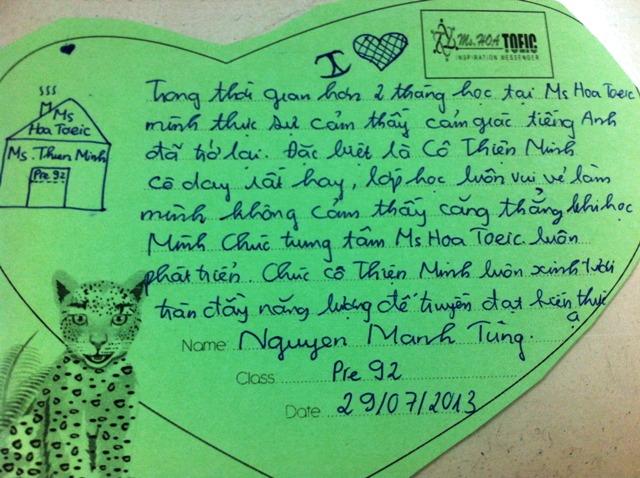 I
Ms. HOA TOEIC
INSPIRATION MESSENGER
Ms
Hoa Toeic
Ms. Thien Minh
Pre 92
Trong thời gian hơn 2 tháng học tại Ms Hoa Toeic
mình thực sự cảm thấy cảm giác tiếng Anh
đã trở lại. Đặc biệt là Cô Thiện Minh
cô dạy rất hay, lớp học luôn vui vẻ làm
mình không cảm thấy căng thẳng khi học
Mình Chúc trung tâm Ms Hoa Toeic luôn
phát triển. Chúc cô Thiện Minh luôn xinh tươi
tràn đầy năng lượng để truyền đạt kiến thức
ạ
Name: Nguyen Manh Tùng.
Class Pre 92
Date 29/07/2013